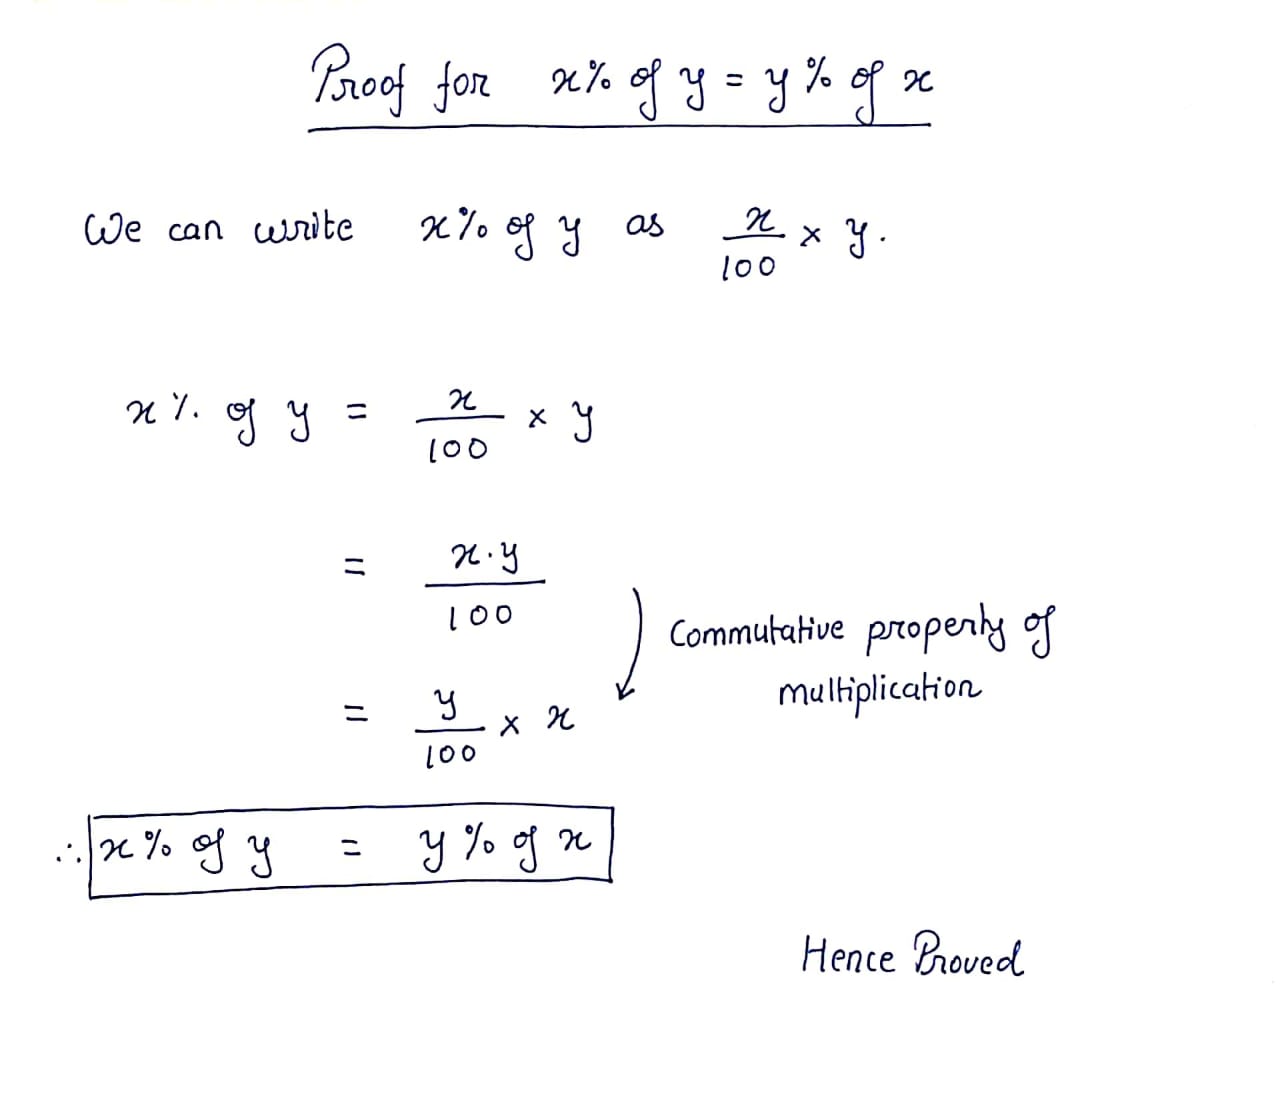 Proof for x% of y = y% of x
We can write x% of y as x/100 × y.
x% of y = x/100 × y
= x·y/100
Commutative property of
multiplication
= y/100 × x
∴ x% of y = y% of x
Hence Proved